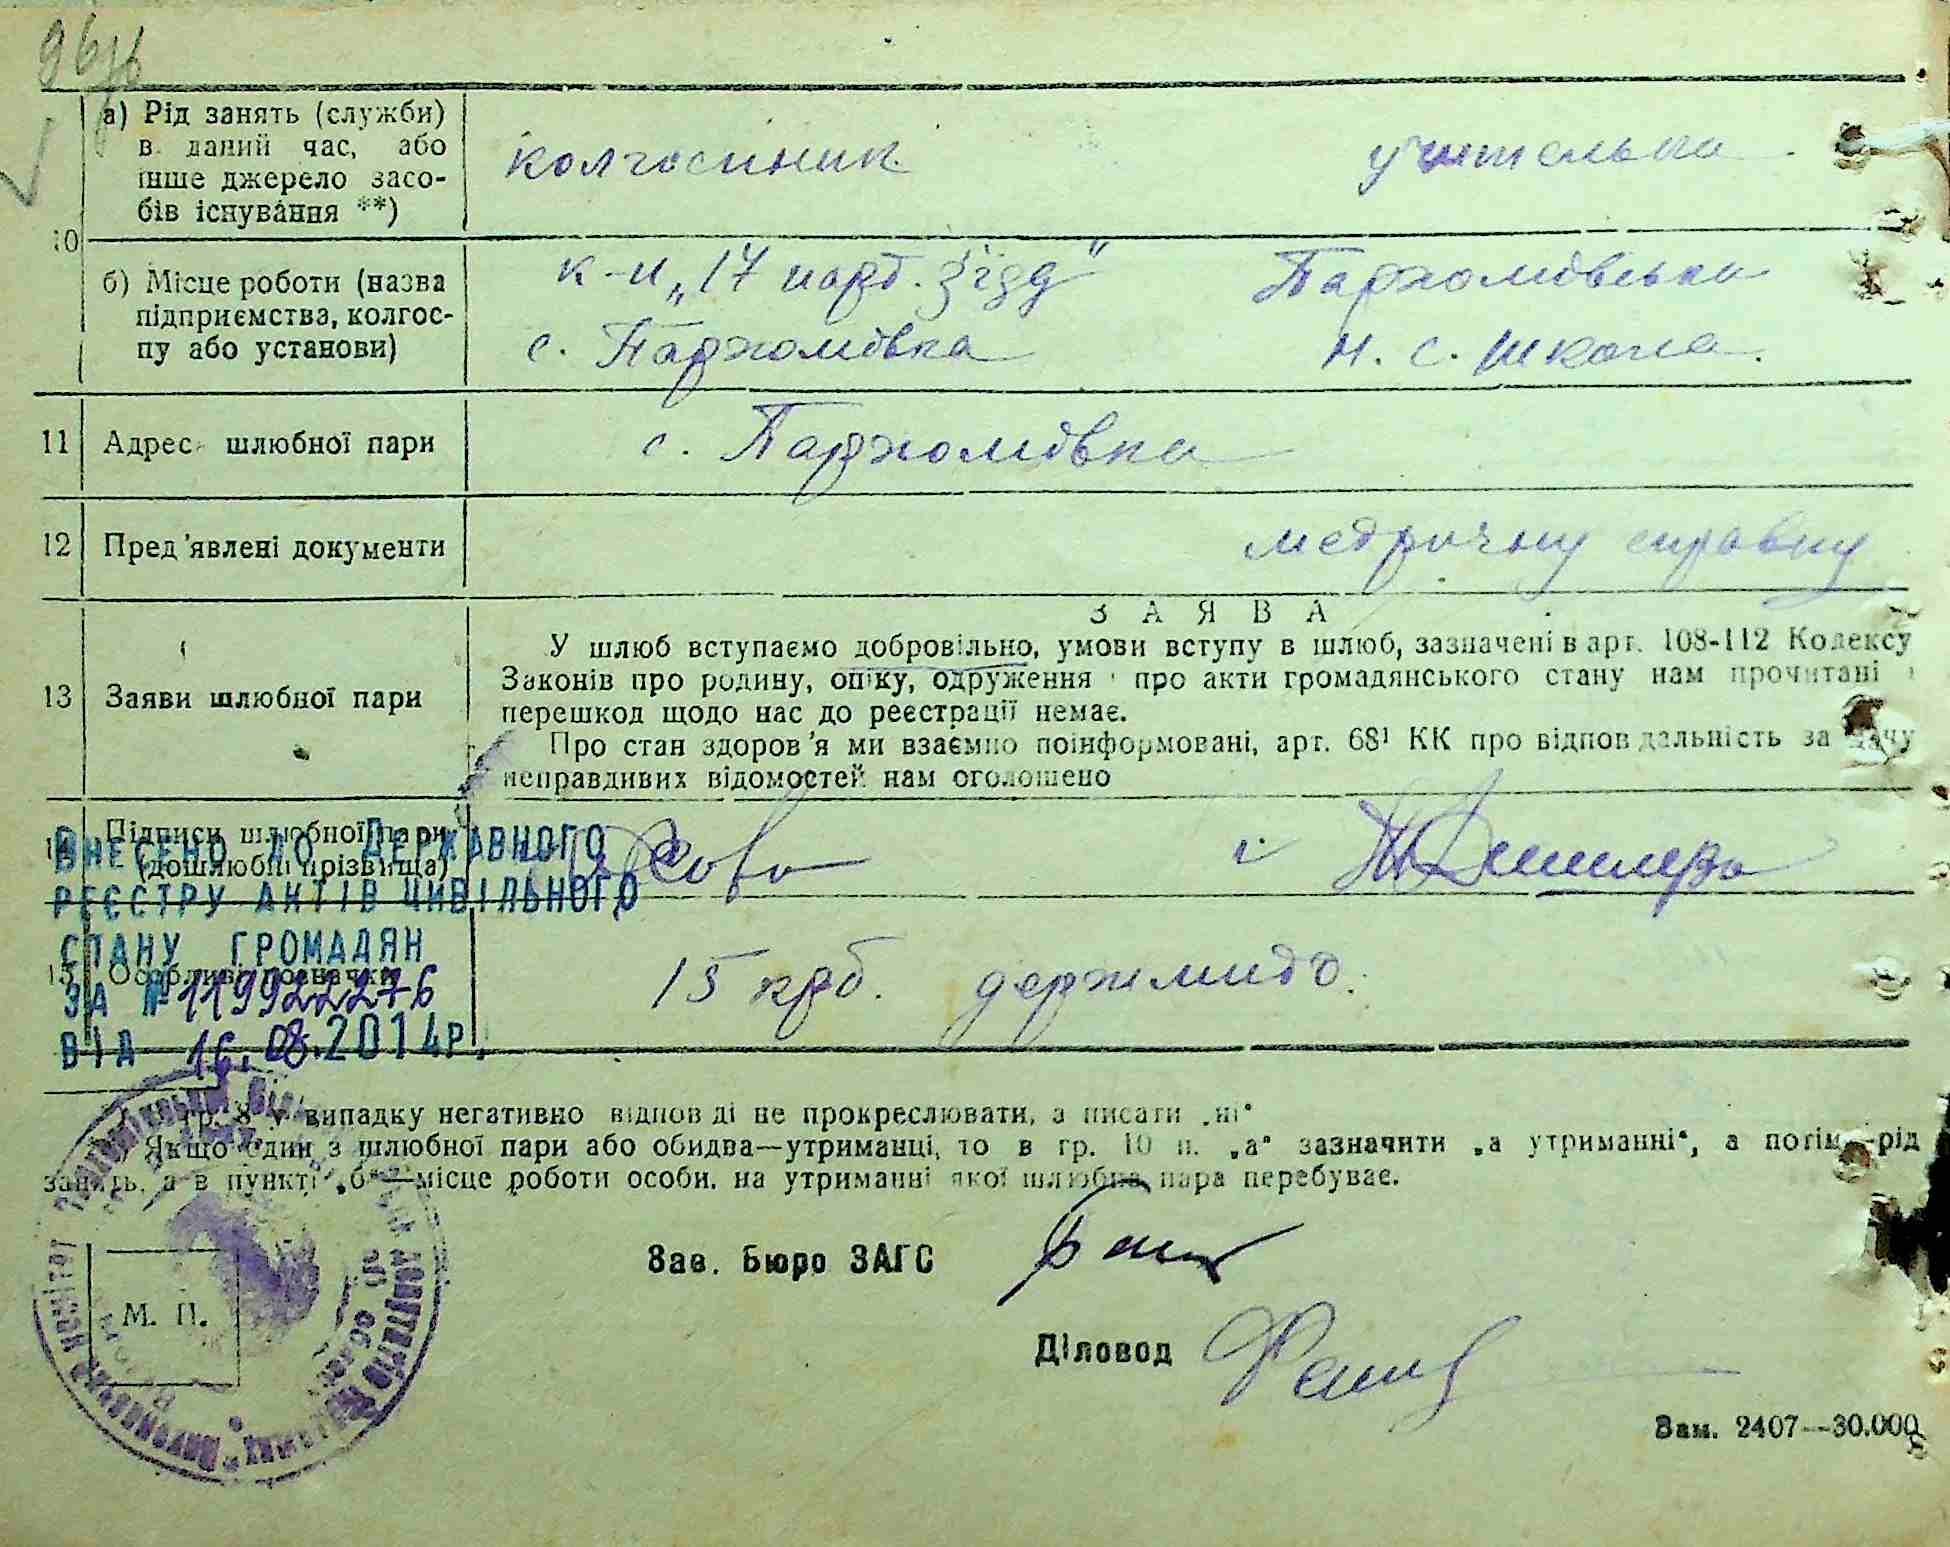 а) Рід занять (служби)
в даний час, або
інше джерело засо-
бів існування **)
колгоспник
учителька
10
б) Місце роботи (назва
підприємства, колгос-
пу або установи)
к-п „17 парт. з'їзд"
с. Пархомівка
Пархомівська
н. с. школа.
11 Адрес шлюбної пари
с. Пархомівка
12 Пред'явлені документи
метричну справку
13 Заяви шлюбної пари
ЗАЯВА
У шлюб вступаємо добровільно, умови вступу в шлюб, зазначені в арт. 108-112 Кодексу
Законів про родину, опіку, одруження і про акти громадянського стану нам прочитані і
перешкод щодо нас до реєстрації немає.
Про стан здоров'я ми взаємно поінформовані, арт. 68¹ КК про відповідальність за дачу
неправдивих відомостей нам оголошено
14 Підписи шлюбної пари
(дошлюбні прізвища)
15 Особливі позначки
15 крб. держмито.
ВНЕСЕНО ДО ДЕРЖАВНОГО
РЕЄСТРУ АКТІВ ЦИВІЛЬНОГО
СТАНУ ГРОМАДЯН
ЗА № 119922276
ВІД 16.08.2014р.
гр. 8 у випадку негативно відповіді не прокреслювати, а писати „ні"
Якщо один з шлюбної пари або обидва—утриманці, то в гр. 10 п. „а" зазначити „а утриманні", а потім—рід
занять, а в пункті „б"—місце роботи особи, на утриманні якої шлюбна пара перебуває.
М. П.
Зав. Бюро ЗАГС
Діловод
Зам. 2407—30.000